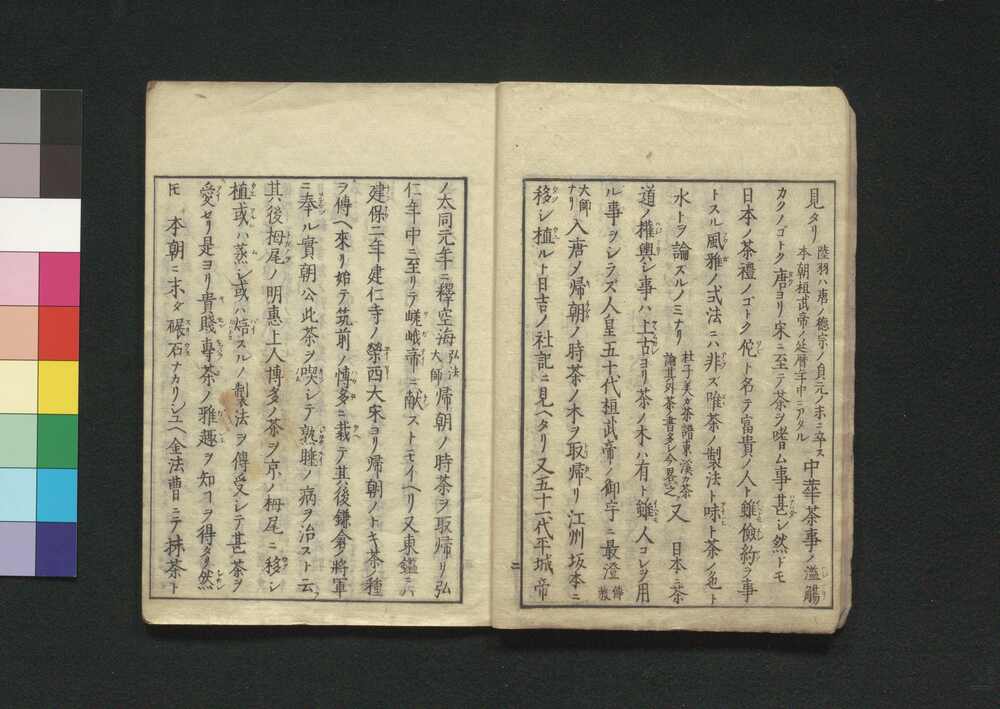 見タリ 陸羽ハ唐ノ德宗ノ貞元ノ末ニ卒ス 本朝桓武帝ノ延暦年中ニアタル 中華茶事ノ濫觴
カクノゴトク唐ヨリ宋ニ至テ茶ヲ嗜ム事甚シ然ドモ
日本ノ茶禮ノゴトク佗ト名テ富貴ノ人ト雖儉約ヲ事
トスル風雅ノ式法ニハ非ズ唯茶ノ製法ト味ト茶ノ色ト
水トヲ論スルノミナリ 杜子美カ茶譜東溪カ茶論其外茶ノ書多シ今畧之 又 日本ニ茶
道ノ權輿シ事ハ上古ヨリ茶ノ木ハ有ト雖人コレヲ用
ル事ヲシラズ人皇五十代桓武帝ノ御宇ニ最澄 傳教
大師ナリ 入唐ノ帰朝ノ時茶ノ木ヲ取帰リ江州坂本ニ
移シ植ルト日吉ノ社記ニ見ヘタリ又五十一代平城帝
二
ノ大同元年ニ釋空海 弘法大師 帰朝ノ時茶ヲ取帰リ弘
仁年中ニ至リテ嵯峨帝ニ献ストモイヘリ又東鑑ニハ
建保二年建仁寺ノ榮西大宋ヨリ帰朝ノトキ茶ノ種
ヲ傳ヘ來リ始テ筑前ノ博多ニ栽テ其後鎌倉將軍
ニ奉ル實朝公此茶ヲ喫シテ熟睡ノ病ヲ治スト云
其後栂尾ノ明惠上人博多ノ茶ヲ京ノ栂尾ニ移シ
植或ハ蒸シ或ハ焙スルノ製法ヲ傳受シテ甚茶ヲ
愛セリ是ヨリ貴賤專茶ノ雅趣ヲ知ヿヲ得タリ然
𪜈 本朝ニ末ダ碾石ナカリシユヘ金法曹ニテ抹茶ト